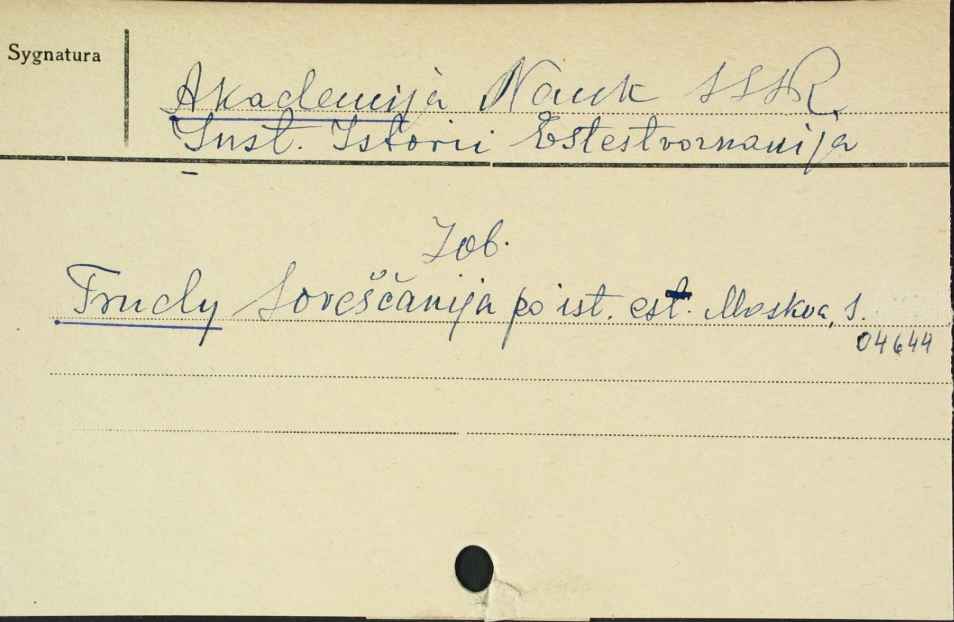 Sygnatura
Akademija Nauk SSSR
Inst. Istorii Estestvoznanija
Zob.
Trudy Soveščanija po ist. est. Moskva, S.
04644